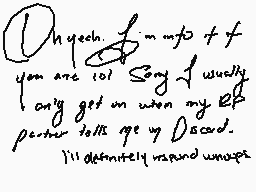 Oh yeah. I'm
you are lol Sorry I usually
only get on when my RP
partner tells me on Discord.
I'll definitely respond